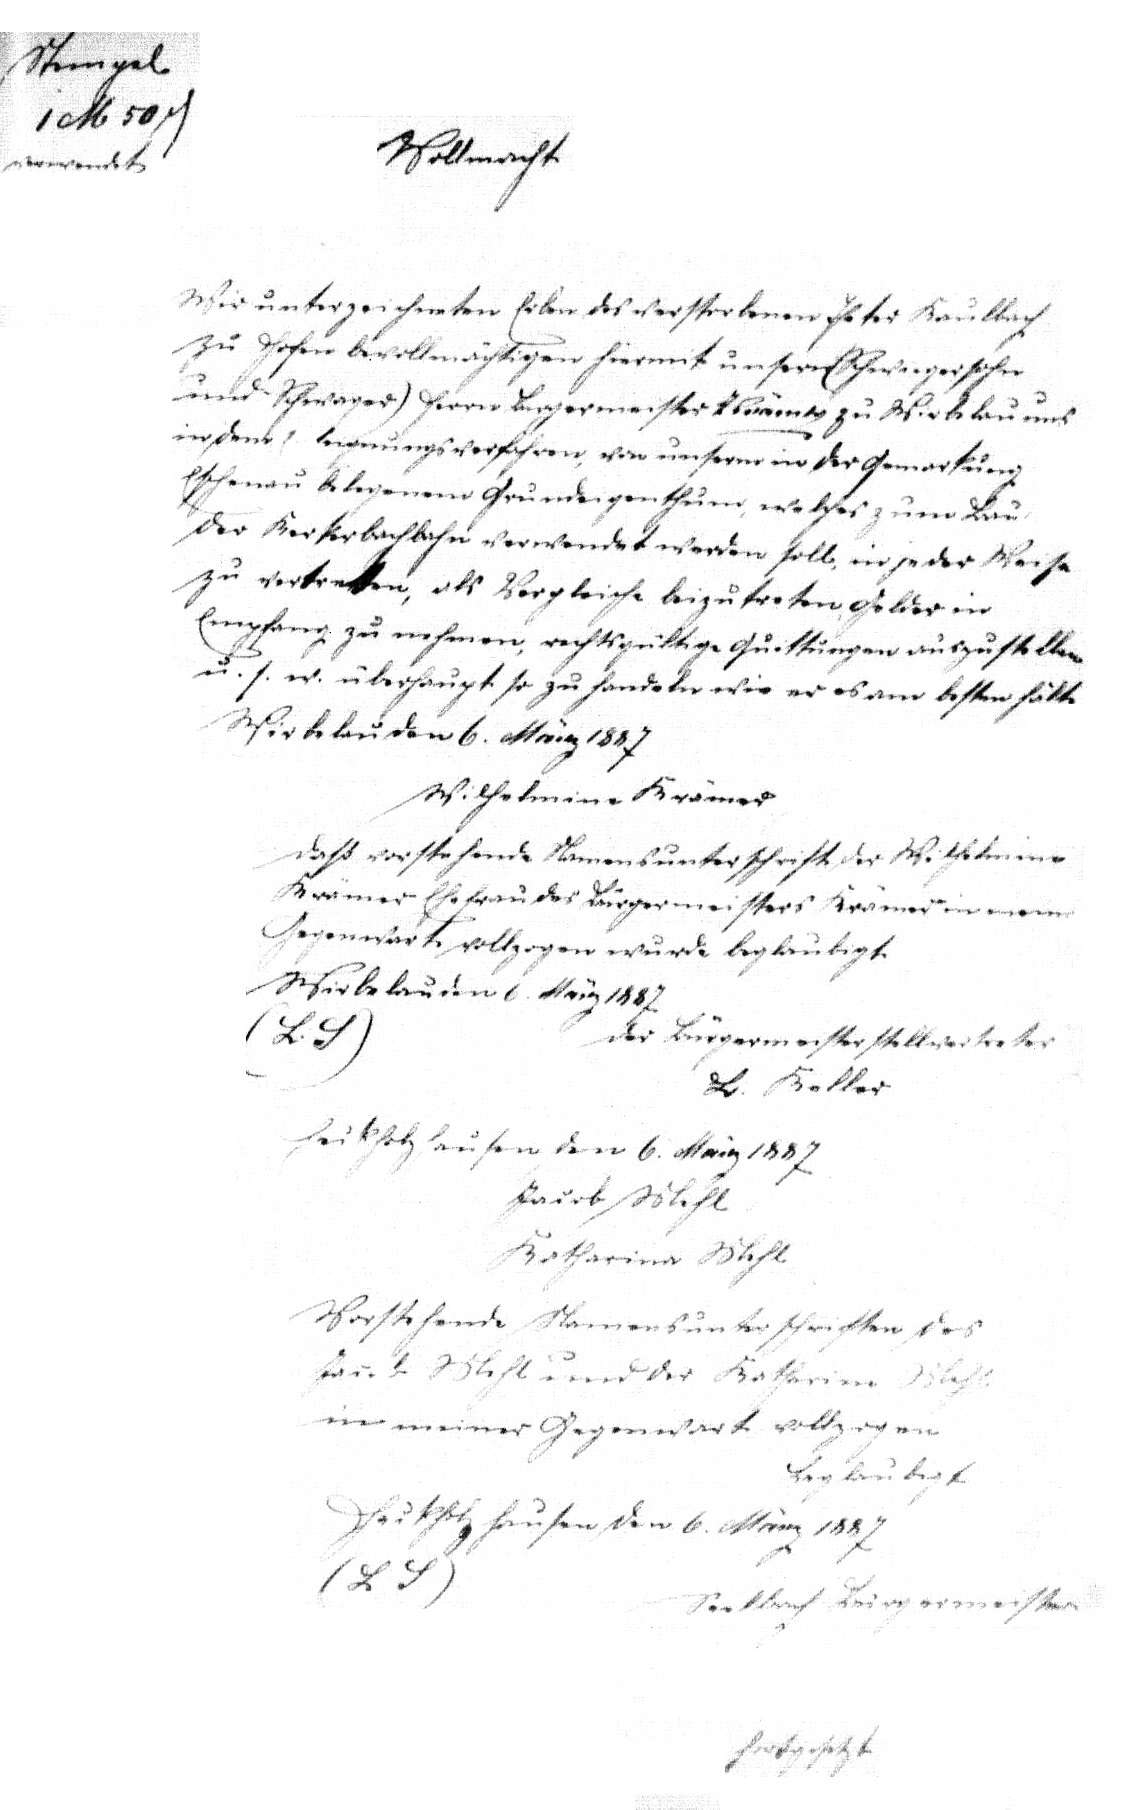 Stempel
1 M 50 ₰
verwendet
Vollmacht
Wir unterzeichneten Erben des verstorbenen Peter Kaulbach
zu Hofen bevollmächtigen hiermit unsern (Schwiegersohn
und Schwager) Herrn Bürgermeister Krämer zu Wirbelau uns
in dem verfahren, von unserm in der Gemarkung
Eschenau belegenem Grundeigenthum, welches zum Bau
der Kerkerbachbahn verwendet werden soll, in jeder Weise
zu vertretten, als Vergleiche beizutreten, Gelder in
Empfang zu nehmen, rechtsgültige Quittungen auszustellen
u. s. w. überhaupt so zu handeln wie er es am besten hält
Wirbelau den 6. März 1887
Wilhelmine Krämer
daß vorstehende Namensunterschrift der Wilhelmine
Krämer Ehefrau des Bürgermeisters Krämer in meiner
Gegenwart vollzogen wurde beglaubigt
Wirbelau den 6. März 1887
(L. S)
der Bürgermeisterstellvertreter
L. Keller
Heckholzhausen den 6. März 1887
Jacob
Katharina
Vorstehende Namensunterschriften des
Jacob und der Katharine
in meiner Gegenwart vollzogen
beglaubigt
Heckholzhausen den 6. März 1887
(L S)
Bürgermeister
fortgesetzt